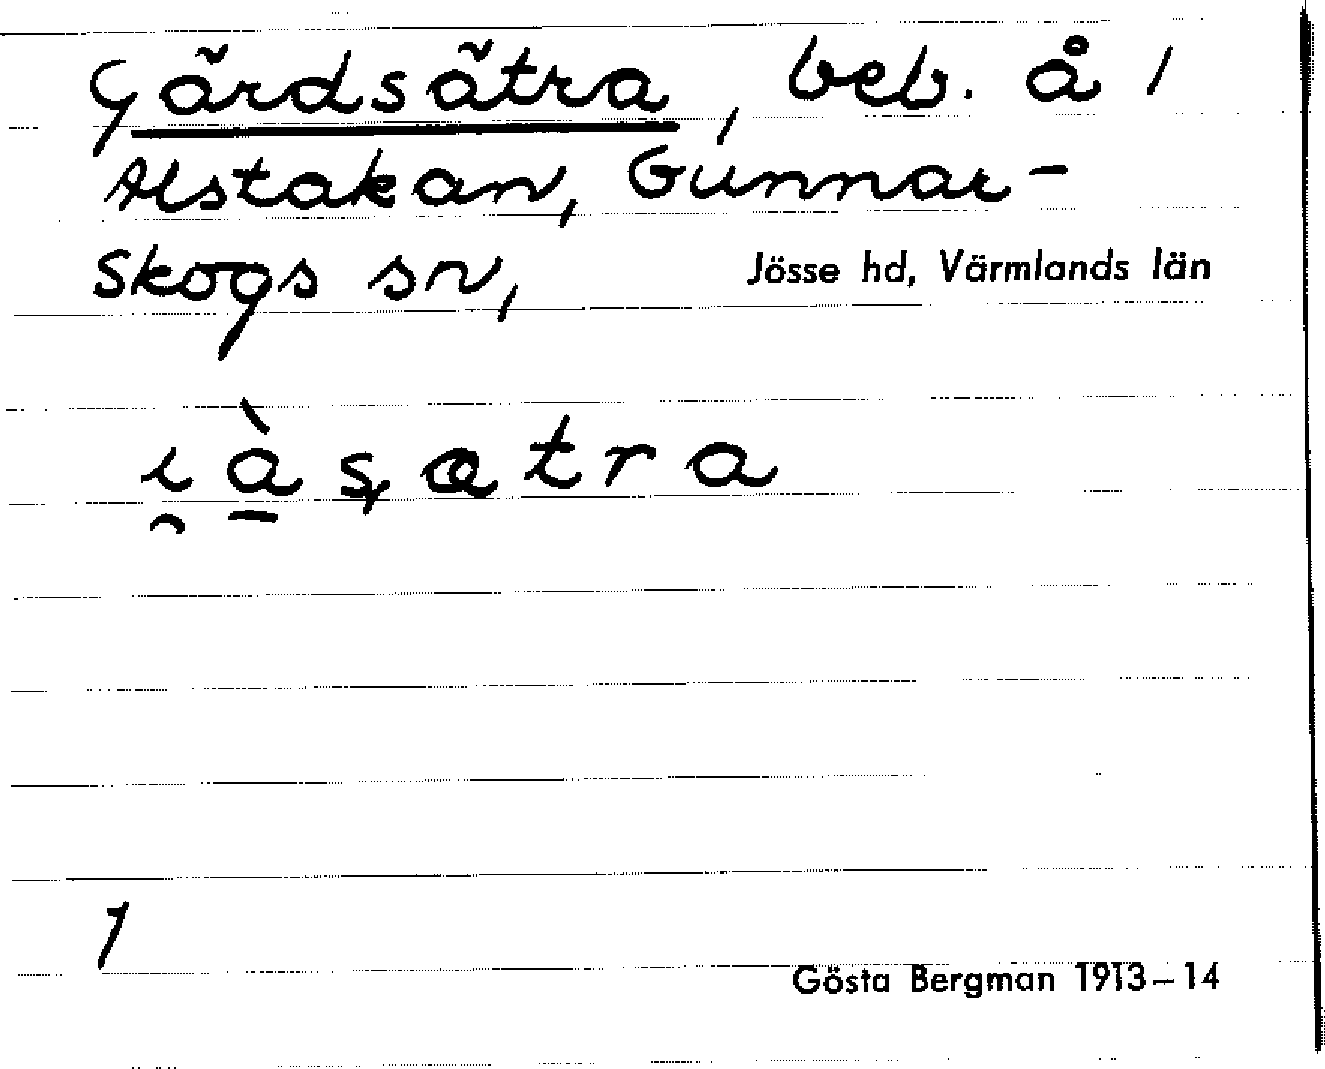 Gärdsätra, beb. å 1
Alstakan, Gunnar-
Skogs sn, Jösse hd, Värmlands län
1
Gösta Bergman 1913–14